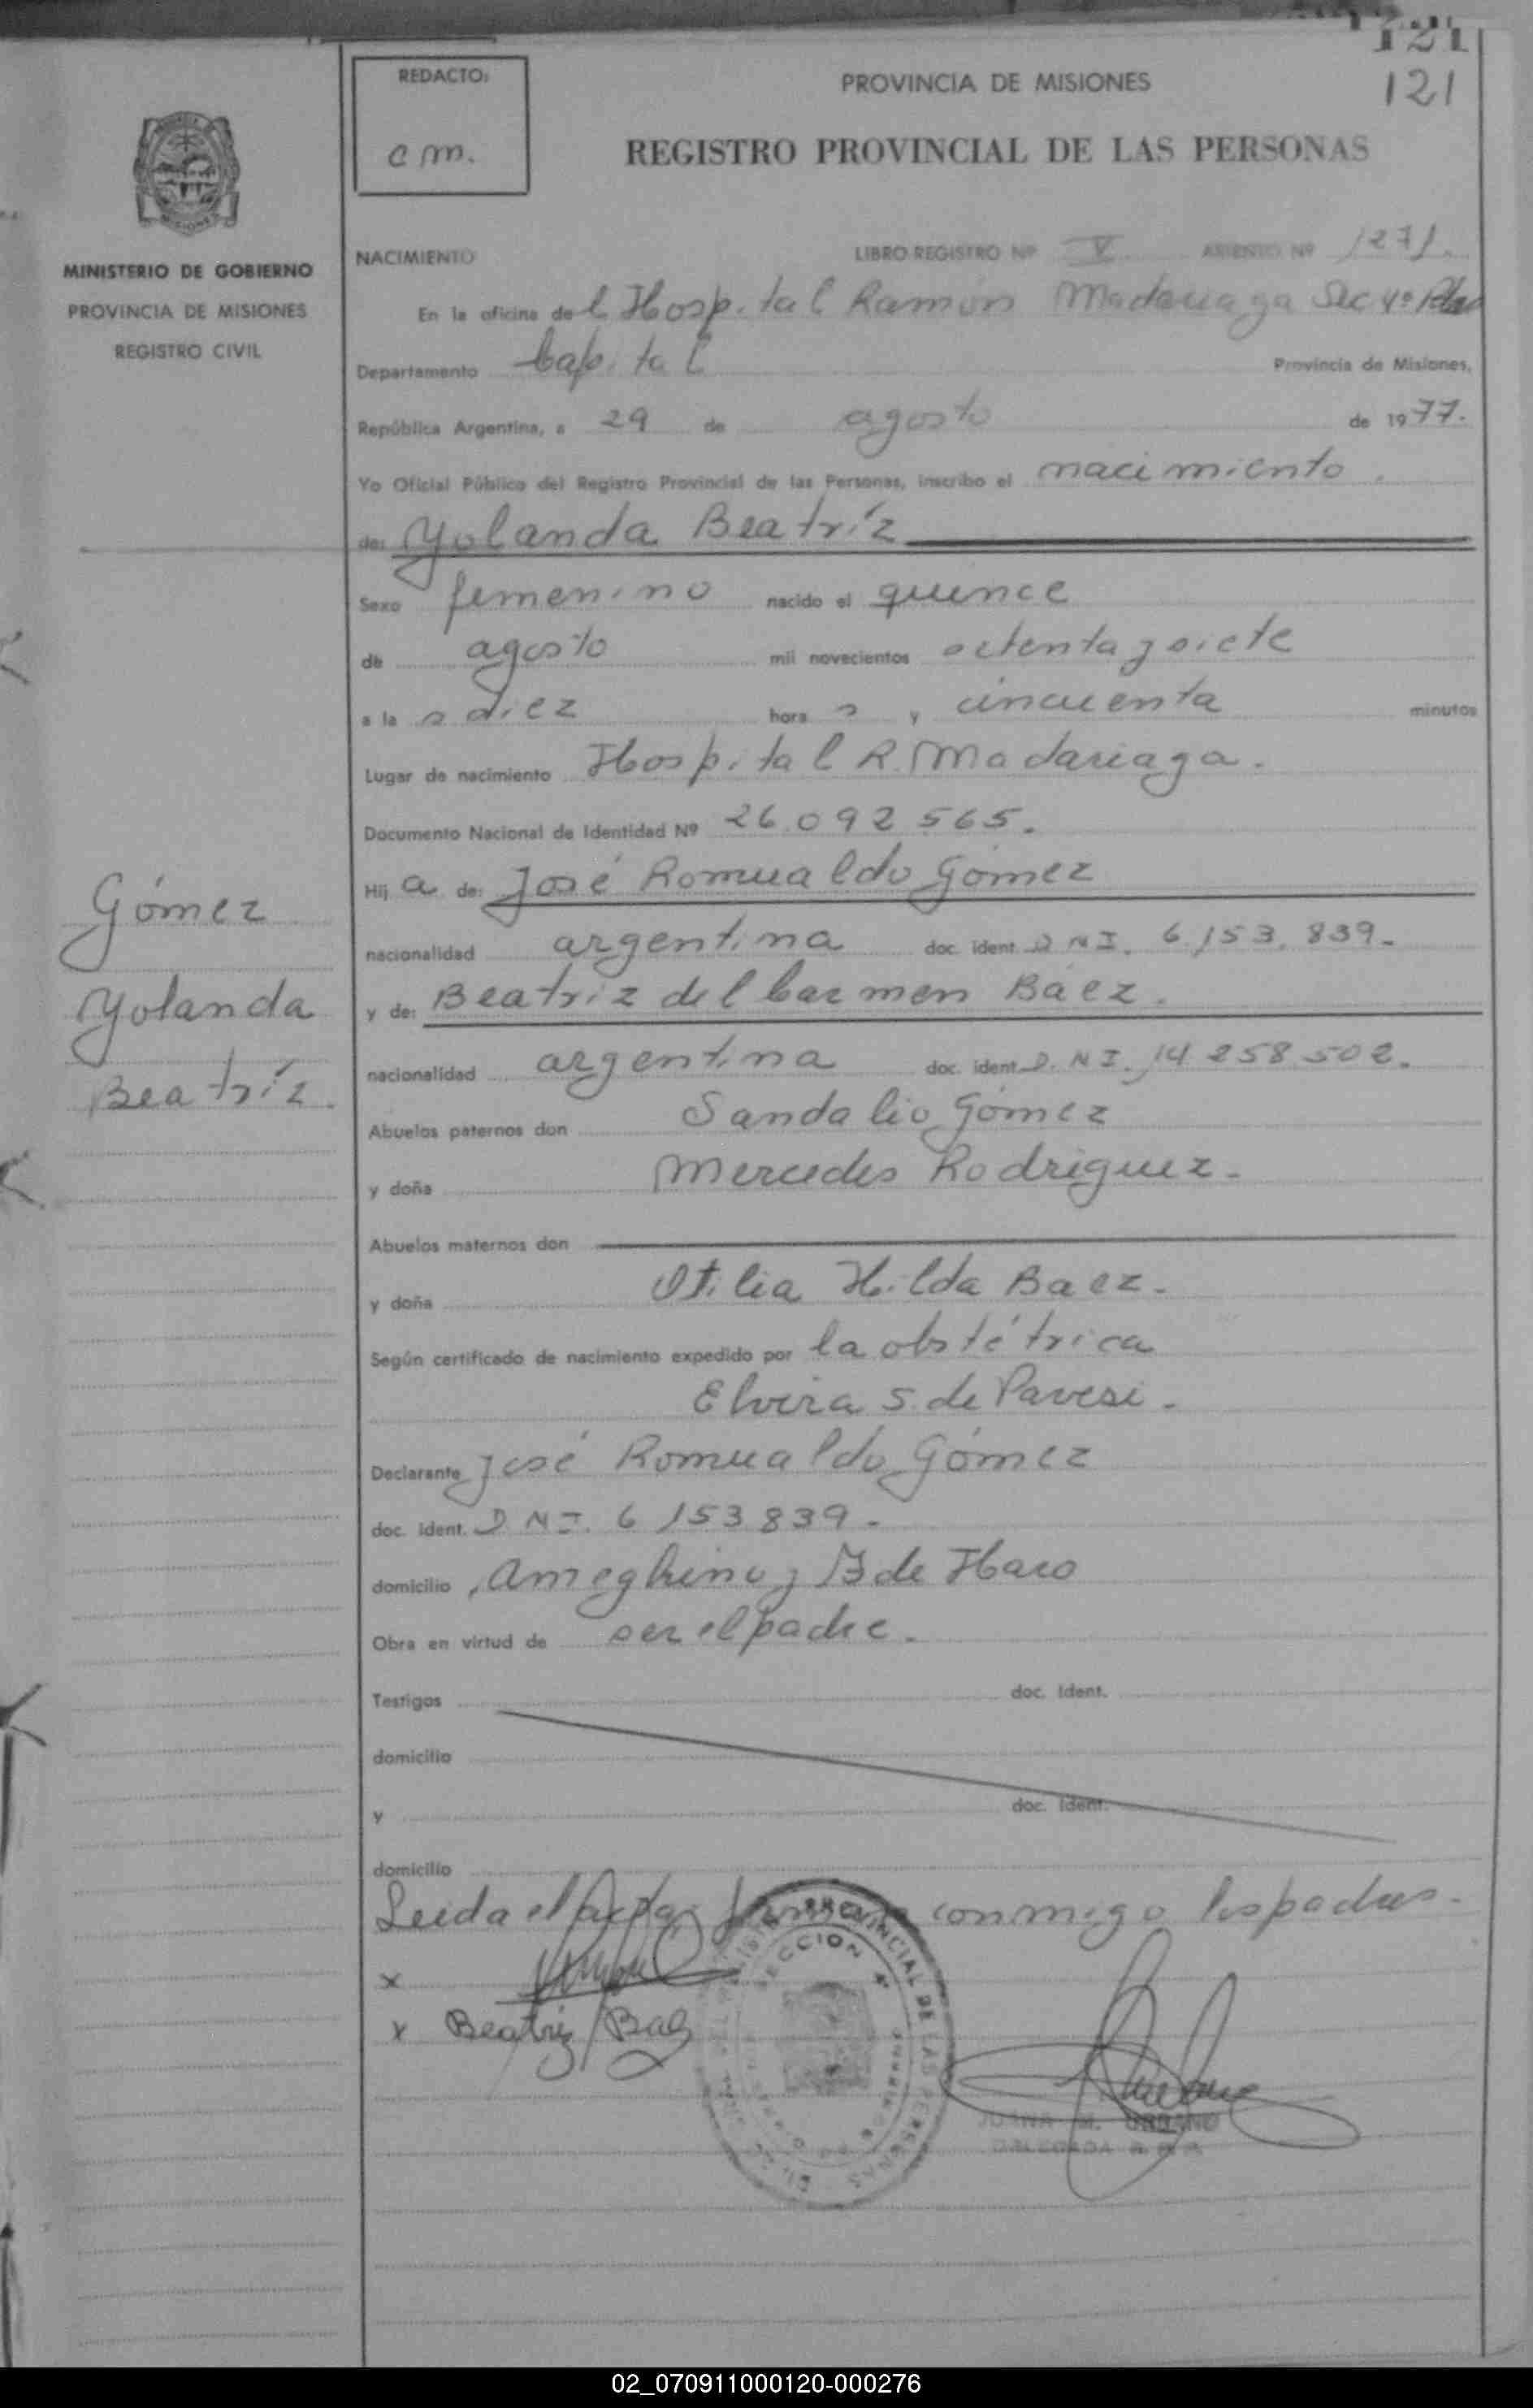 121
121
REDACTO:
c m.
PROVINCIA DE MISIONES
REGISTRO PROVINCIAL DE LAS PERSONAS
MISIONES
MINISTERIO DE GOBIERNO
PROVINCIA DE MISIONES
REGISTRO CIVIL
NACIMIENTO LIBRO REGISTRO Nº V ASIENTO Nº 1271.
En la oficina del Hospital Ramón Madariaga Sec 4º
Departamento Capital Provincia de Misiones,
República Argentina, a 29 de agosto de 1977.
Yo Oficial Público del Registro Provincial de las Personas, inscribo el nacimiento
de: Yolanda Beatríz
Sexo femenino nacido el quince
de agosto mil novecientos setenta y siete
a la s diez hora s y cincuenta minutos
Lugar de nacimiento Hospital R. Madariaga.
Documento Nacional de Identidad Nº 26.092.565.
Hij a de: José Romualdo Gómez
nacionalidad argentina doc. ident. D N I. 6.153.839-
y de: Beatriz del Carmen Báez.
nacionalidad argentina doc. ident. D. N I. 14.258.502.
Abuelos paternos don Sandalio Gómez
y doña Mercedes Rodríguez-
Abuelos maternos don
y doña Otilia Hilda Baez-
Según certificado de nacimiento expedido por la obstétrica
Elvira S. de Pavesi-
Declarante José Romualdo Gómez
doc. ident. D N I. 6 153 839-
domicilio Ameghino y B de Haro
Obra en virtud de ser el padre.
Testigos doc. Ident.
domicilio
y doc. Ident.
domicilio
Leida el Acta, conmigo los padres-
x
x Beatriz Baez
Gómez
Yolanda
Beatríz.
PROVINCIAL DE LAS PERSONAS
SECCION 4
JUANA M. URBANO
DELEGADA
02_070911000120-000276